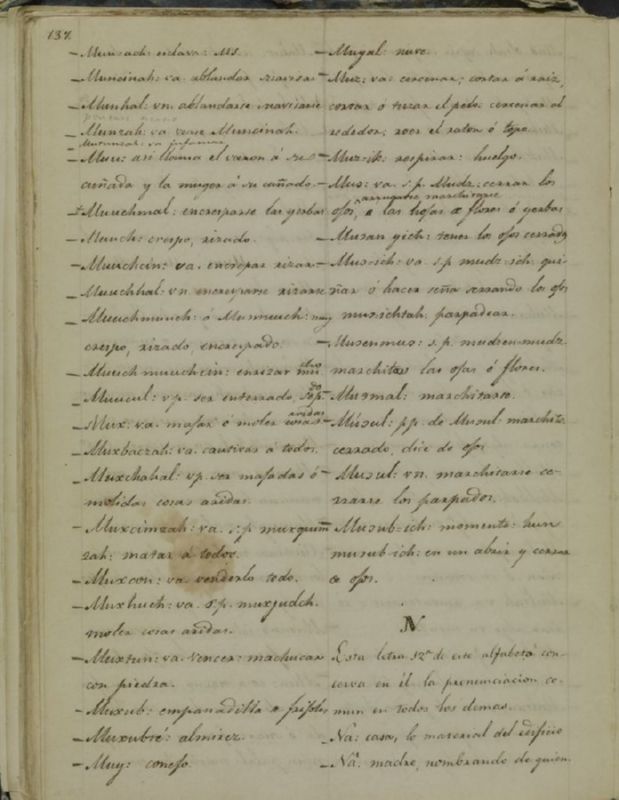 137.
— Munzach: esclava: MS.
— Muncinah: va. ablandar suavisar
— Munhal: vn. ablandarse suavisarse
— Munzah: va. vease Muncinah.
— Muu: asi llama el varon á su
cuñada y la muger á su cuñado.
+ Muuchmal: encresparse las yerbas
— Muuch: crespo, rizado.
— Muuchcin: va. encrespar rizar
— Muuchhal: vn. encresparse rizarse
— Muuchmuuch: ó Mumuuch: muy
crespo, rizado, encrespado.
— Muuchmuuchcin: enrizar mucho
— Muucul: vp. ser enterrado,
— Mux: va. masar ó moler cosas aridas
— Muxbaczah: va. cautivar á todos.
— Muxchahal: vp. ser masadas ó
molidas cosas aridas.
— Muxcimzah: va. s.p. muxquim
zah: matar á todos.
— Muxcon: va. venderlo todo.
— Muxhuch: va. s.p. muxjudch.
moler cosas aridas.
— Muxtun: va. vencer: machucar
con piedra.
— Muxub: empanadilla de frisoles
— Muxubté: almirez.
— Muy: conejo.
— Muyal: nuve.
— Muz: va. cercenar; cortar á raiz,
cortar ó tuzar el pelo: cercenar al
rededor; roer el raton ó topo.
— Muzik: respirar: huelgo.
— Muɔ: va. s.p. Mudz: cerrar los
ojos, arrugarse marchitarse las hojas de flores ó yerbas
— Muɔan yich: tener los ojos cerrados
— Muɔ-ich: va. s.p. mudz-ich. gui-
ñar ó hacer seña serrando los ojos
muɔichtah. parpadear.
— Muɔenmuɔ: s.p. mudzen-mudz.
marchitas las ojas ó flores.
— Muɔmal: marchitarse.
— Múɔul: pp. de Muɔul: marchito
cerrado, dice de ojos
— Muɔul: vn. marchitarse ce-
rrarse los parpados.
— Muɔub-ich: momento: hun
muɔub ich: en un abrir y cerrar
de ojos.
N
Esta letra 12ª de este alfabeto con-
serva en él la pronunciacion co-
mun en todos los demas.
— Na: casa, lo material del edificio
— Nâ: madre, nombrando de quien.